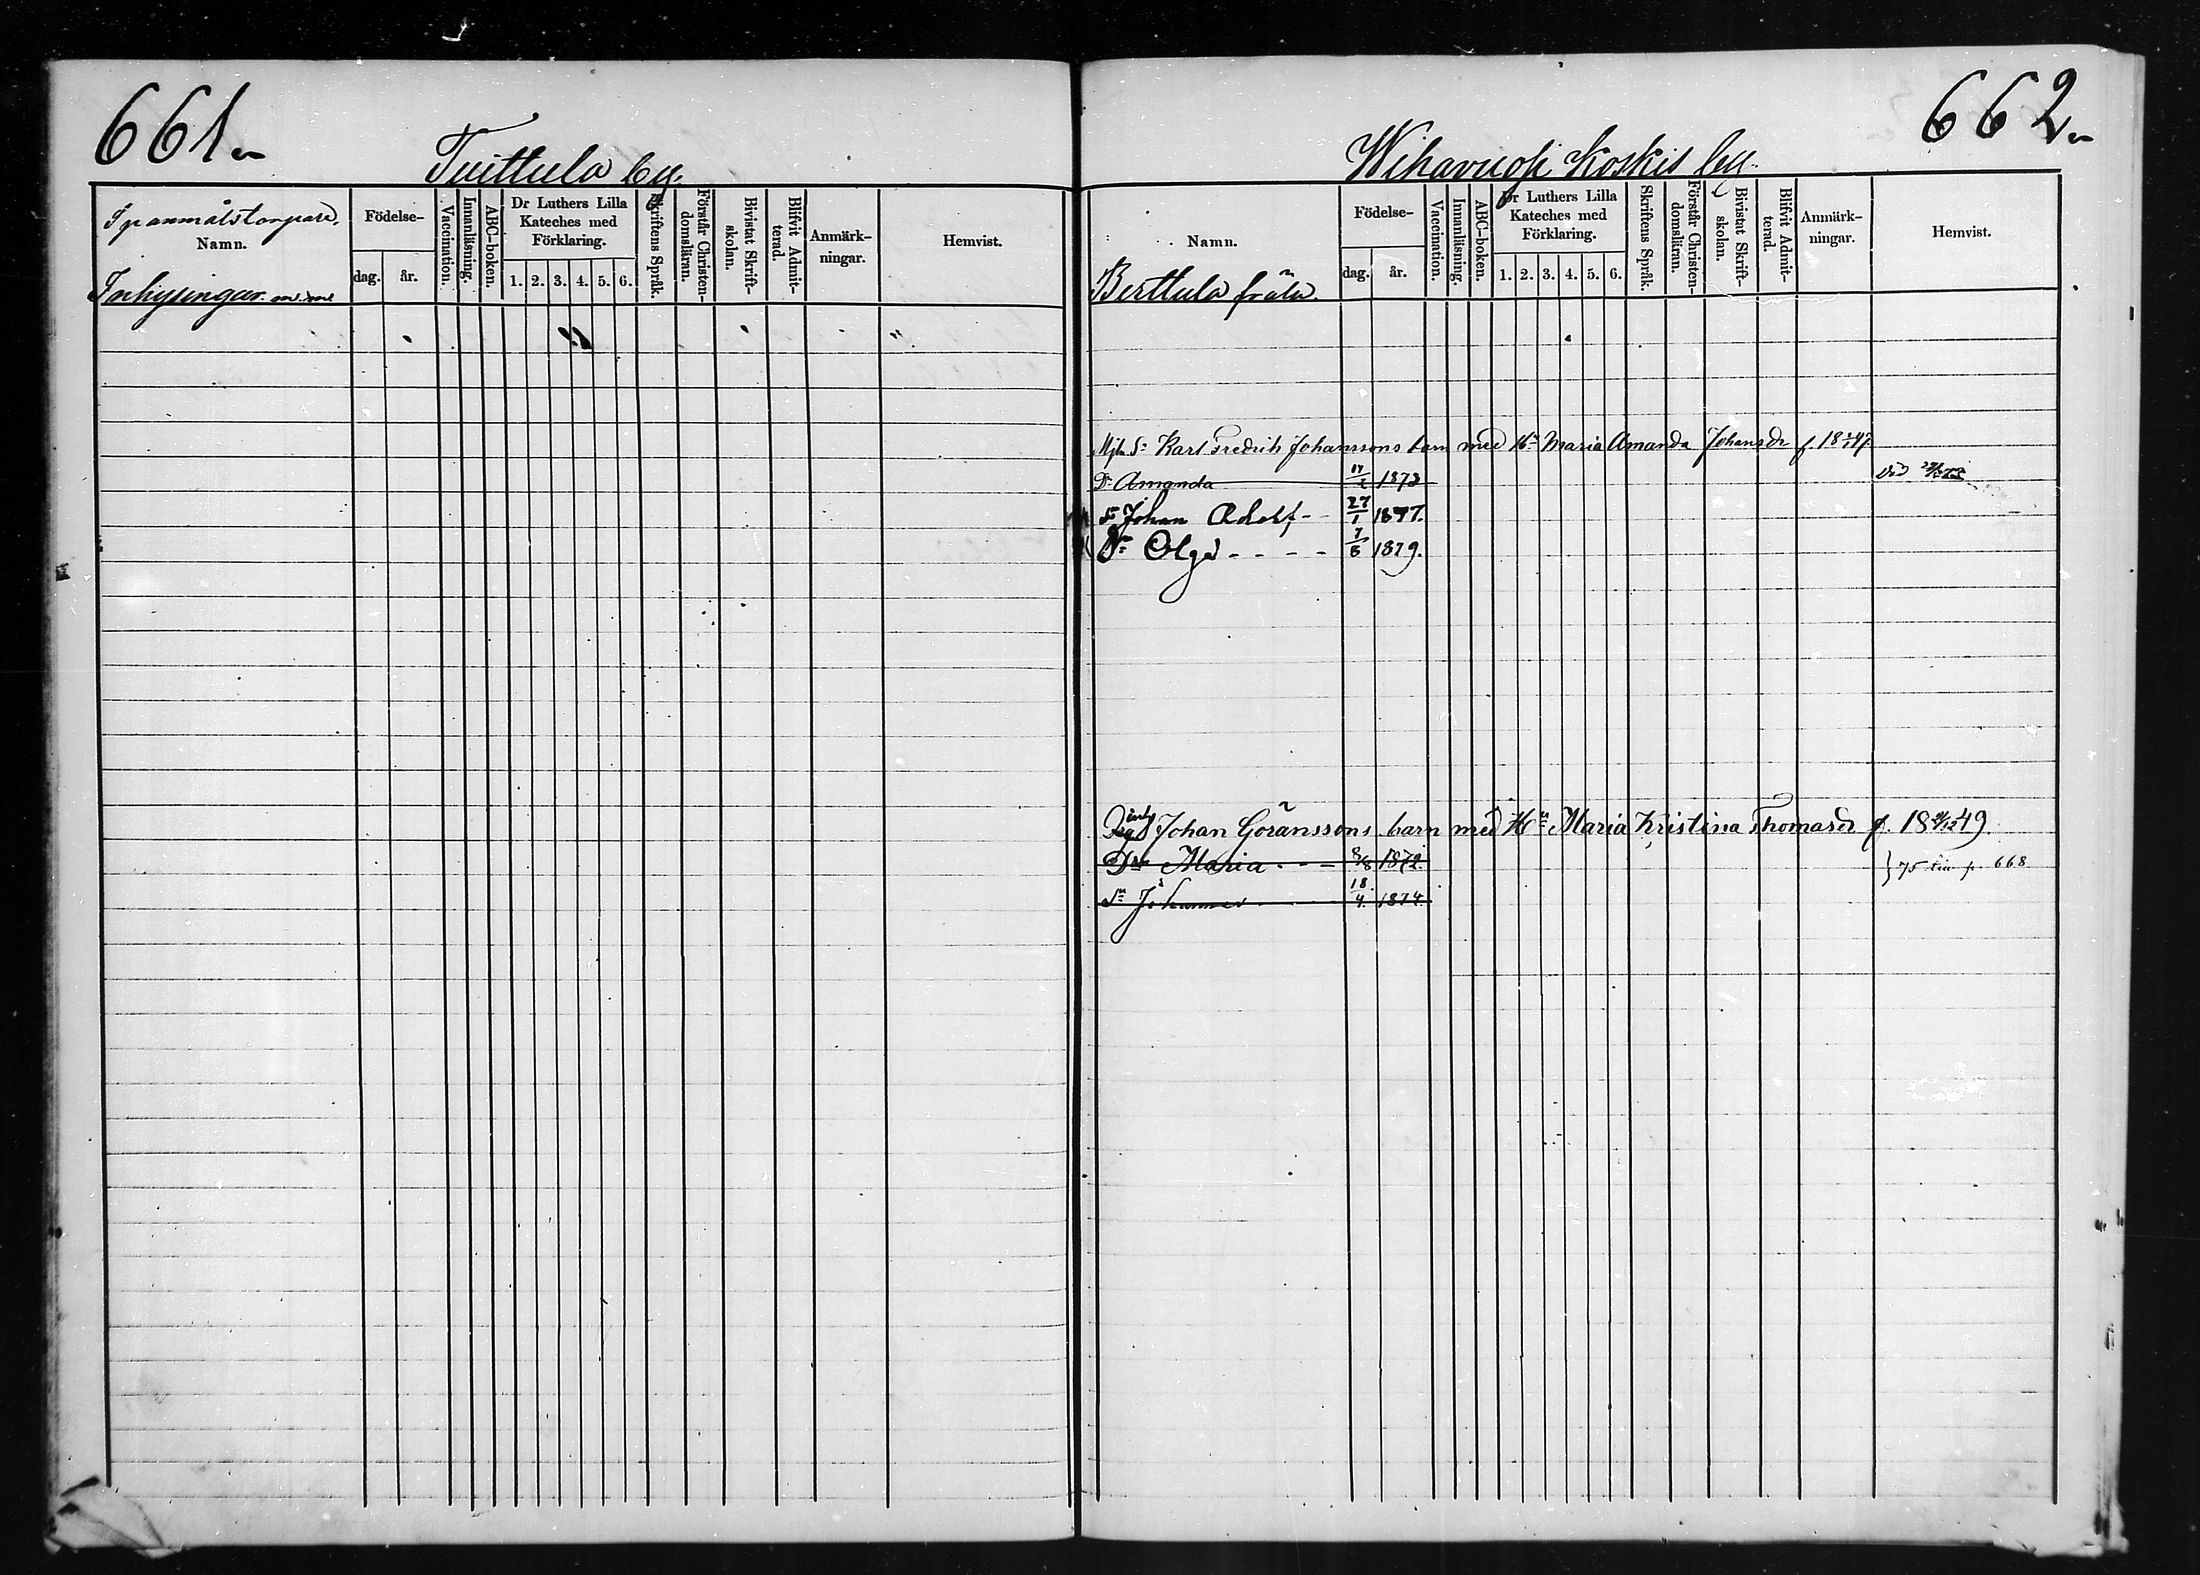 661.
Tuittula by.
Spanmålstorpare,
Namn.
Inhysingar m.m.
Födelse-
dag.
år.
Vaccination.
Innanläsning.
ABC-boken.
Dr Luthers Lilla
Kateches med
Förklaring.
1. 2. 3. 4. 5. 6.
Skriftens Språk.
Förstår Christen-
domsläran.
Bivistat Skrift-
skolan.
Blifvit Admit-
terad.
Anmärk-
ningar.
Hemvist.
662.
Wihavuosi Koskis by.
Namn.
Berttula fräls.
Födelse-
dag.
år.
Vaccination.
Innanläsning.
ABC-boken.
Dr Luthers Lilla
Kateches med
Förklaring.
1. 2. 3. 4. 5. 6.
Skriftens Språk.
Förstår Christen-
domsläran.
Bivistat Skrift-
skolan.
Blifvit Admit-
terad.
Anmärk-
ningar.
Hemvist.
Sn Karl Fredrik Johanssons barn med Hn Maria Amanda Johansdr f. 18 47.
Dr Amanda 1873
Sn Johan Adolf 27/1 1877.
Dr Olga 7/8 1879.
Johan Göranssons barn med Hn Maria Kristina Thomasdr f. 18 49.
Dr Maria 8/8 1872
75 p. 668
Sn Johannes 18/4 1874.